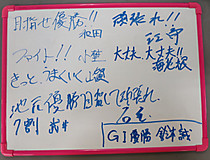 目指せ優勝!!
池田
ファイト!! 小笠
きっと、うまくいく 山賀
地元優勝目指して頑張れ
石毛
7割 武井
頑張れ!!
江守
大丈夫、大丈夫!!
海老根
GI優勝 鈴木誠